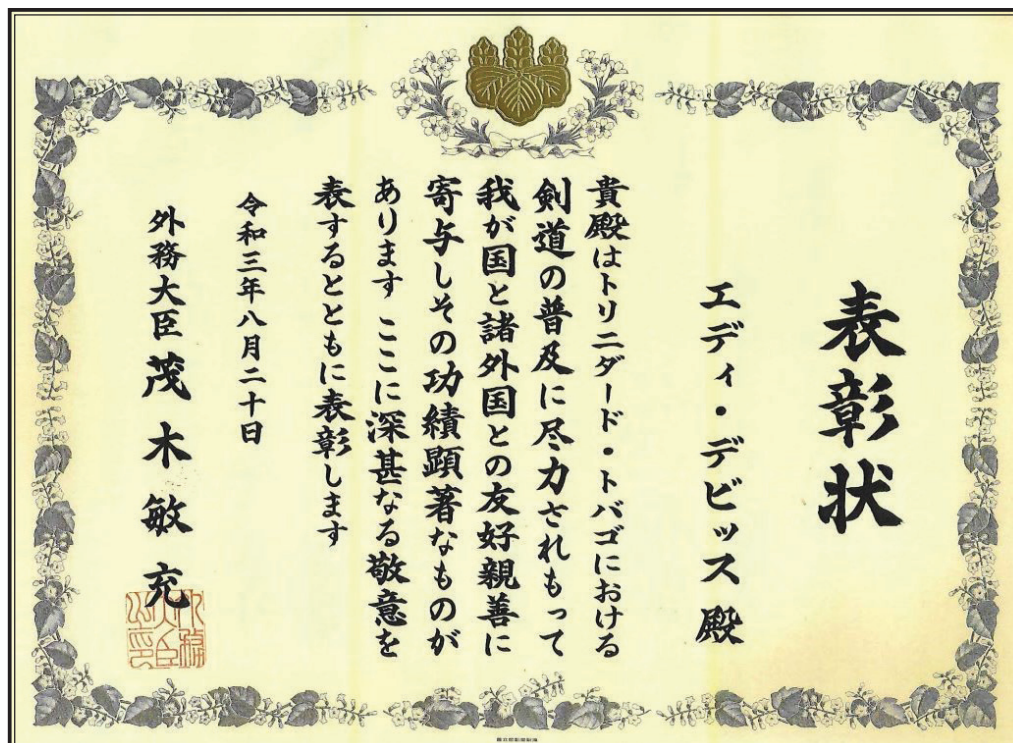 表彰状
エディ・デビッス殿
貴殿はトリニダード・トバゴにおける
剣道の普及に尽力されもって
我が国と諸外国との友好親善に
寄与しその功績顕著なものが
あります ここに深甚なる敬意を
表するとともに表彰します
令和三年八月二十日
外務大臣 茂木敏充